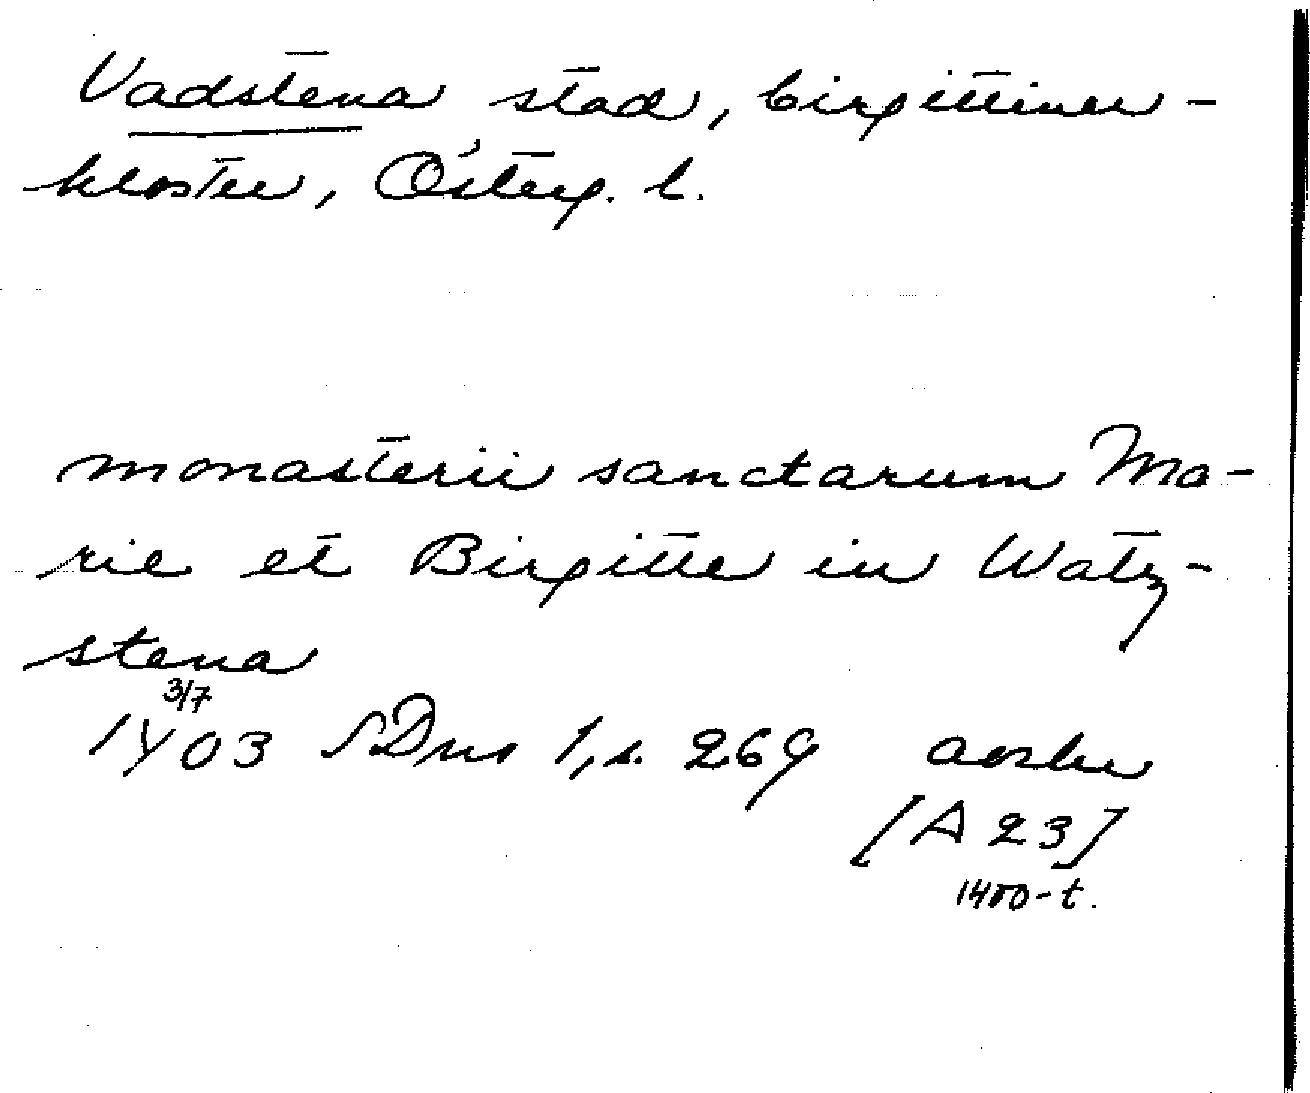 Vadstena stad, birgittiner-
kloster, Österg. l.
monasterii sanctarum Ma-
rie et Birgitte in Watz-
stena
3/7
1403 SDns 1, s. 269 avskr
[A 23]
1400-t.